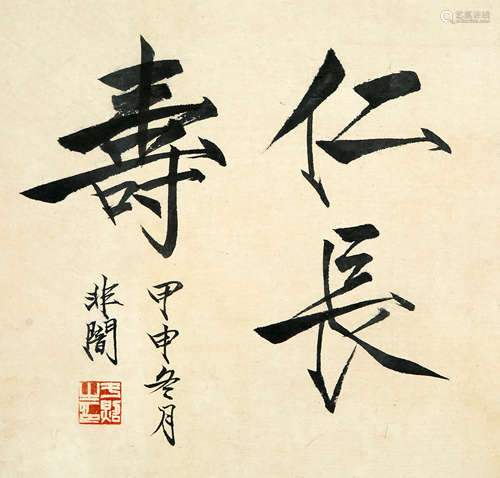 仁長
壽
甲申冬月
非闇